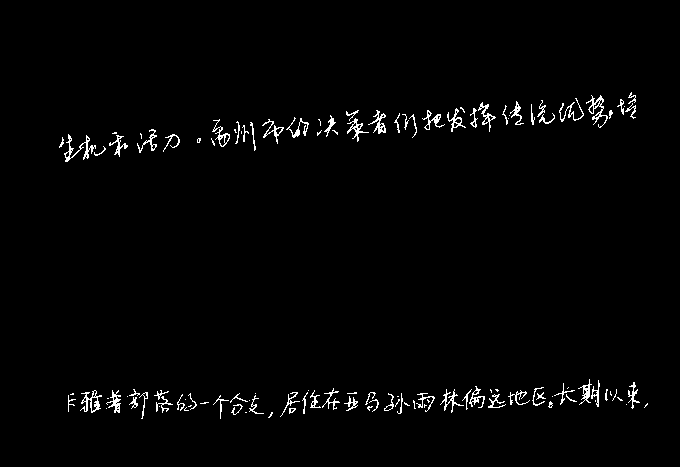 生机和活力。禹州市的决策者们把发挥传统优势、培
卡雅普部落的一个分支，居住在亚马孙雨林偏远地区。长期以来，